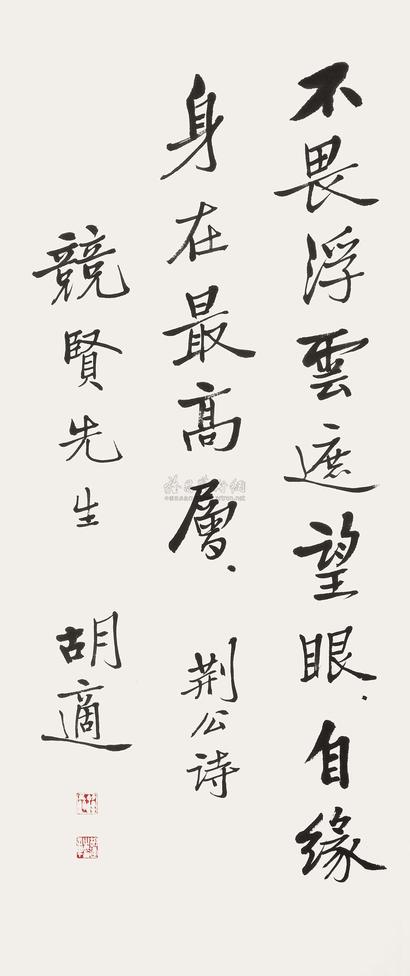 不畏浮雲遮望眼．自缘
身在最高層．
荆公诗
競賢先生
胡適